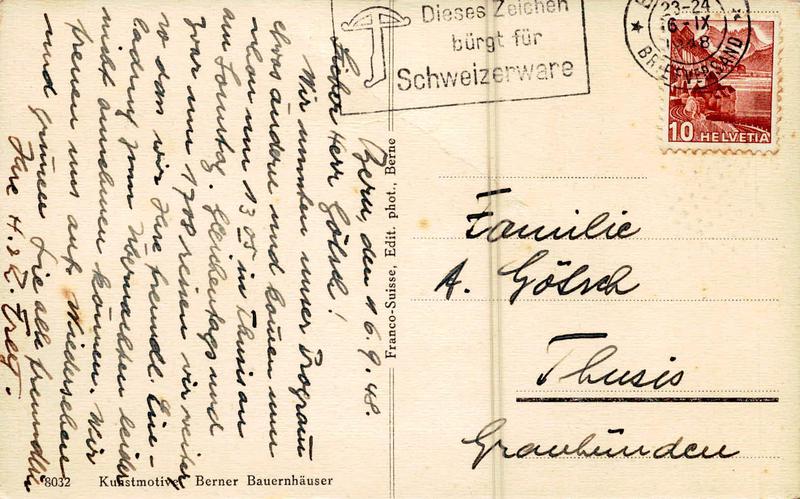 Bern, den 16.9.48.
Lieber Herr Gölsch!
Wir mussten unser Program
etwas ändern und kommen nun
schon um 13 05 in Thusis an
am Sonntag. Gleichentags und
zwar um 17 08 reisen wir weiter
so dass wir Ihre freundl. Ein-
ladung zum Übernachten leider
nicht annehmen können. Wir
freuen uns auf Wiedersehen
und grüssen Sie alle freundlich
Ihre H. &
8032 Kunstmotive Berner Bauernhäuser
Franco-Suisse, Edit. phot., Berne
Dieses Zeichen
bürgt für
Schweizerware
23-24
16-IX
BRIEFVERSAND
10 HELVETIA
Familie
A. Gölsch
Thusis
Graubünden